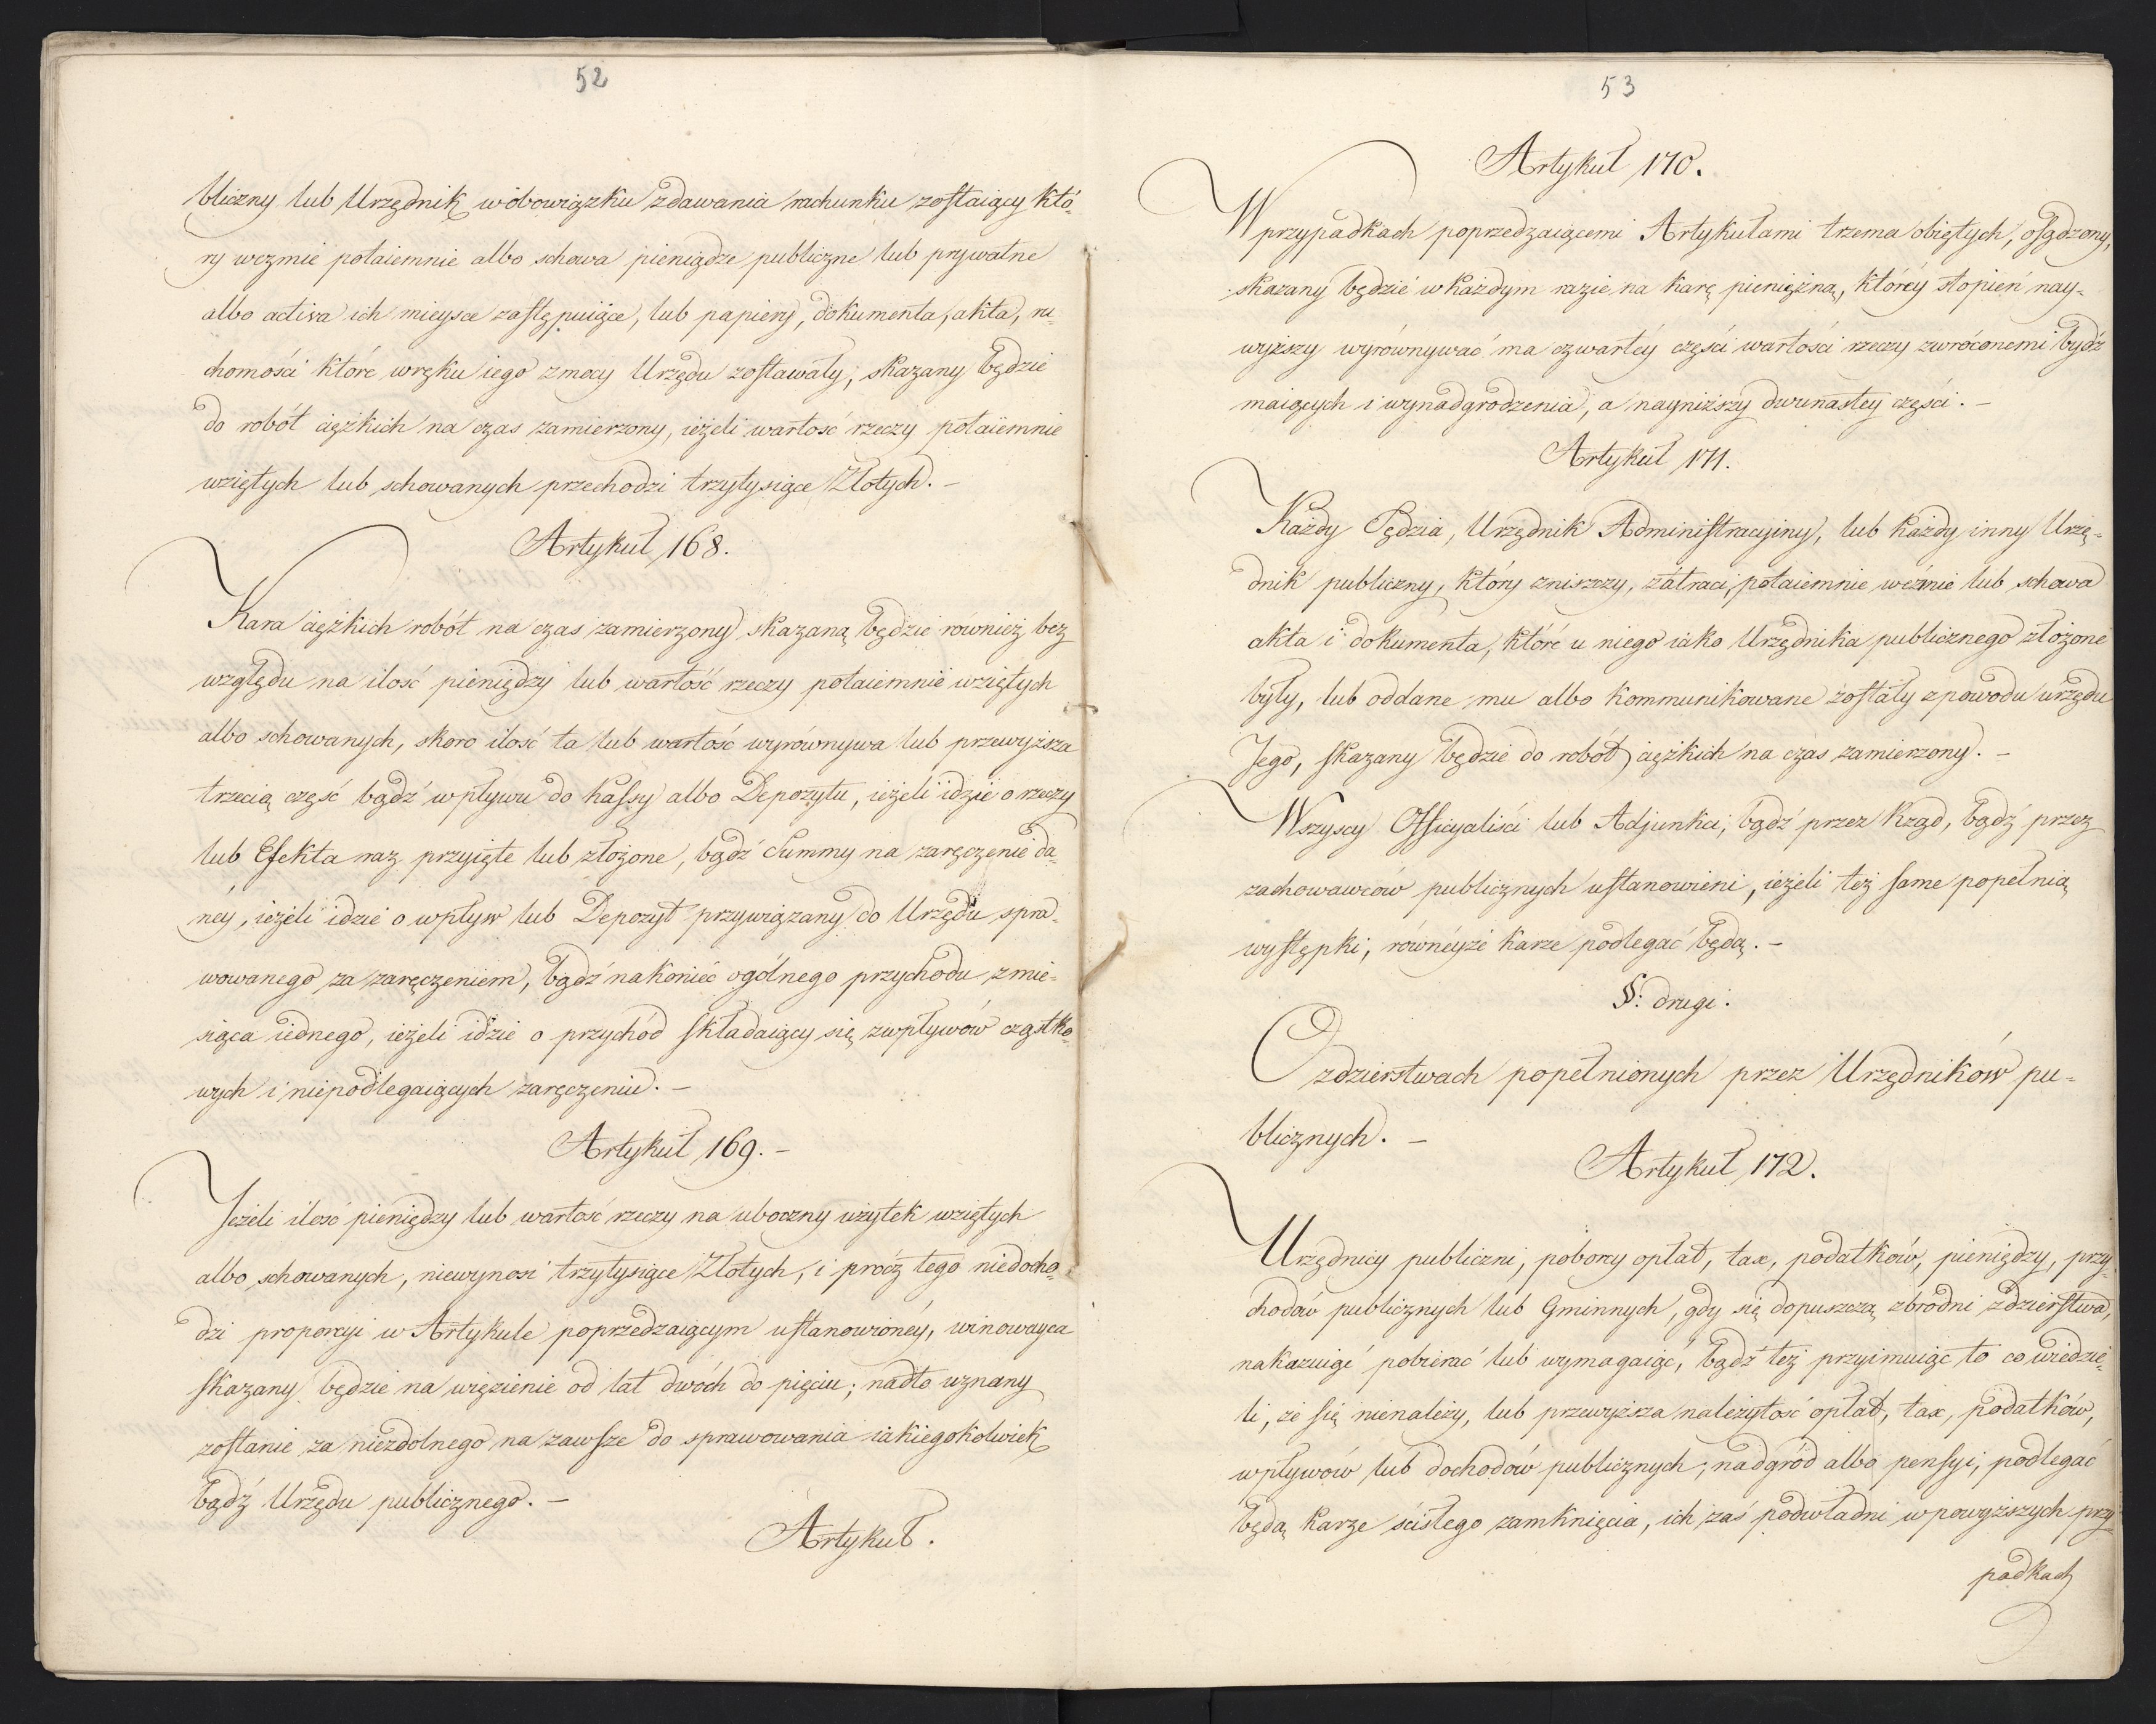 52
bliczny lub Urzędnik wobowiązku zdawania rachunku zostaiący któ-
ry wezmie potaiemnie albo schowa pieniądze publiczne lub prywatne
albo activa ich mieysce zastępuiące, lub papiery, dokumenta, akta, ru-
chomości które wręku iego zmocy Urzędu zostawały, skazany będzie
do robót ciężkich na czas zamierzony, ieżeli wartość rzeczy potaiemnie
wziętych lub schowanych przechodzi trzytysiące Złotych. –
Artykuł 168.
Kara ciężkich robót na czas zamierzony skazaną będzie również bez
względu na ilość pieniędzy lub wartość rzeczy potaiemnie wziętych
albo schowanych, skoro ilość ta lub wartość wyrównywa lub przewyższa
trzecią część bądź wpływu do kassy albo Depozytu, ieżeli idzie o rzeczy
lub Efekta raz przyięte lub złożone, bądź Summy na zaręczenie da-
néy, ieżeli idzie o wpływ lub Depozyt przywiązany do Urzędu spra-
wowanego za zaręczeniem, bądź nakoniec ogólnego przychodu zmie-
siąca iednego, ieżeli idzie o przychód składaiący się zwpływów cząstko-
wych i niepodlegaiących zaręczeniu. –
Artykuł 169. –
Jeżeli ilość pieniędzy lub wartość rzeczy na uboczny użytek wziętych
albo schowanych, niewynosi trzytysiące Złotych, i prócz tego niedocho-
dzi proporcyi w Artykule poprzedzaiącym ustanowionéy, winowayca
skazany będzie na więzienie od lat dwóch do pięciu; nadto uznany
zostanie za niezdolnego na zawsze do sprawowania iakiegokolwiek
bądź Urzędu publicznego. –
Artykuł.
53
Artykuł 170.
W przypadkach poprzedzaiącemi Artykułami trzema obiętych, osądzony,
skazany będzie w każdym razie na karę pieniężną, któréy stopień nay-
wyższy wyrównywać ma czwartéy części wartości rzeczy zwróconemi bydź
maiących i wynadgrodzenia, a nayniższy dwunastey części. –
Artykuł 171.
Każdy Sędzia, Urzędnik Administracyiny, lub każdy inny Urzę-
dnik publiczny, który zniszczy, zatraci, potaiemnie weźmie lub schowa
akta i dokumenta, które u niego iako Urzędnika publicznego złożone
były, lub oddane mu albo kommunikowane zostały zpowodu urzędu
Jego, skazany będzie do robót ciężkich na czas zamierzony. –
Wszyscy Officyaliści lub Adjunkci, bądź przez Rząd, bądź przez
zachowawców publicznych ustanowieni, ieżeli też same popełnią
występki, równéyże karze podlegać będą. –
§: drugi.
O zdzierstwach popełnionych przez Urzędników pu-
blicznych. –
Artykuł 172.
Urzędnicy publiczni, poborcy opłat, tax, podatków, pieniędzy, przy-
chodów publicznych lub Gminnych, gdy się dopuszczą zbrodni zdzierstwa,
nakazuiąc pobierać lub wymagaiąc, bądź też przyimuiąc to co wiedzie-
li, że się nienależy, lub przewyższa należytość opłat, tax, podatków,
wpływów lub dochodów publicznych, nadgród albo pensyi, podlegać
będą karze ścisłego zamknięcia, ich zaś podwładni wpowyższych przy-
padkach